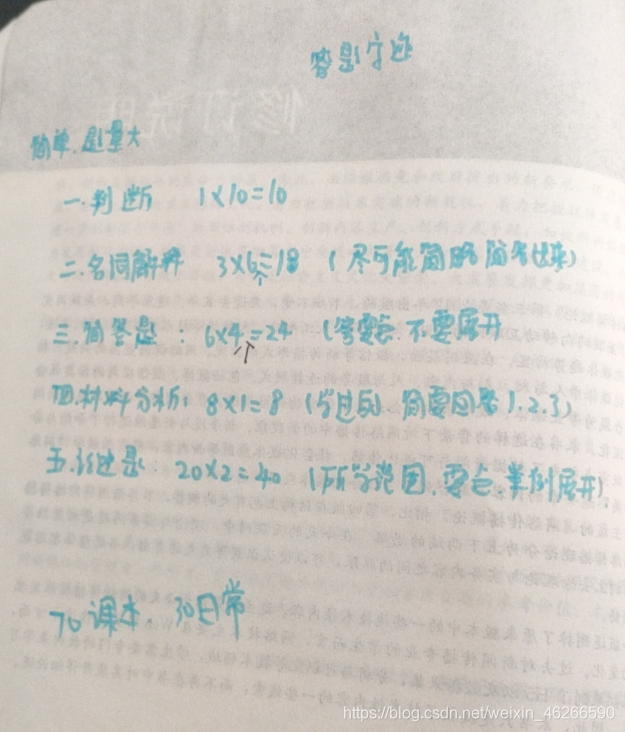 答题字迹
简单.题量大
一.判断 1×10=10
二.名词解释 3×6=18 (尽可能简略 简答出来)
个
三.简答题: 6×4=24 (答要点.不要展开
个
四.材料分析: 8×1=8 ( 简要回答1.2.3)
五.论述题: 20×2=40 (所学范围.要点.举例展开)
70课本. 30日常
https://blog.csdn.net/weixin_46266590